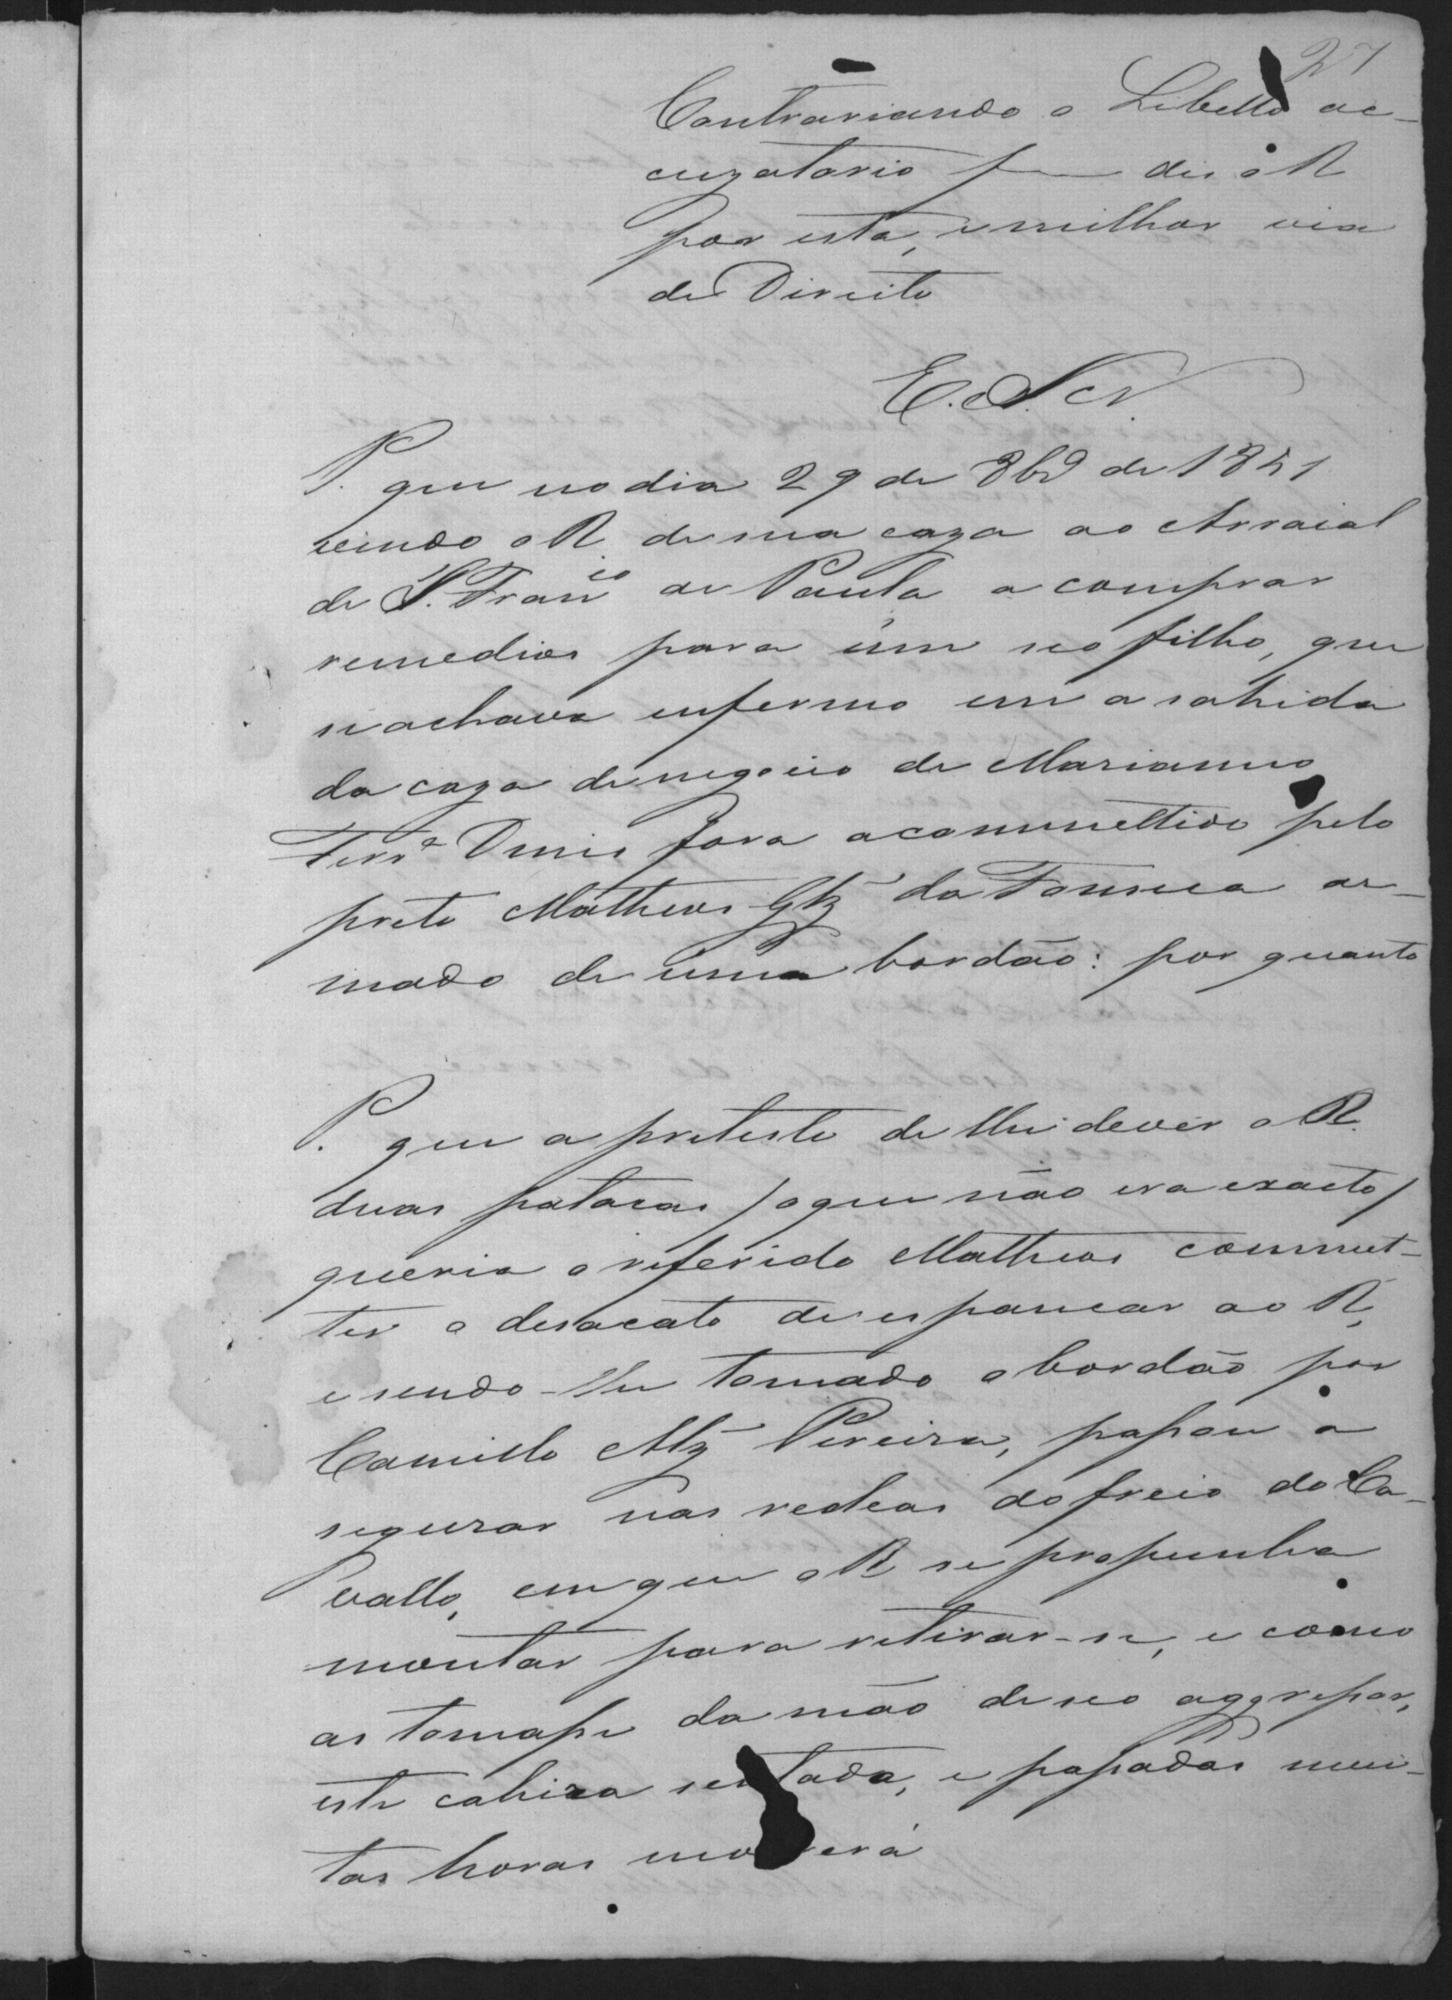 27
Contrariando o Libello ac-
cuzatorio diz o R
por esta, e milhor via
de Direito
E. S. N.
P. que no dia 29 de 8bro de 1851
vindo o R. de sua caza ao Arraial
de S. Franco de Paula a comprar
remedios para úm seo filho, que
se achava enfermo em a sahida
da caza de negocio de Marianno
Ferra Diniz fora acommettido pelo
preto Matheos Glz da Fonseca ar-
mado de úm bordão: por quanto
P. que a pretesto de lhe dever o R.
duas patacas / o que não era exacto /
queria o referido Matheos commet-
ter o desacato de espancar ao R,
e sendo-lhe tomado o bordão por
Camillo Alz Pereira, passou a
segurar nas redeas do freio do Ca-
vallo, em que o R se propunha
montar para retirar-se, e como
as tomasse da mão de seo aggressor,
este cahira sentado, e passadas mui-
tas horas morrerá